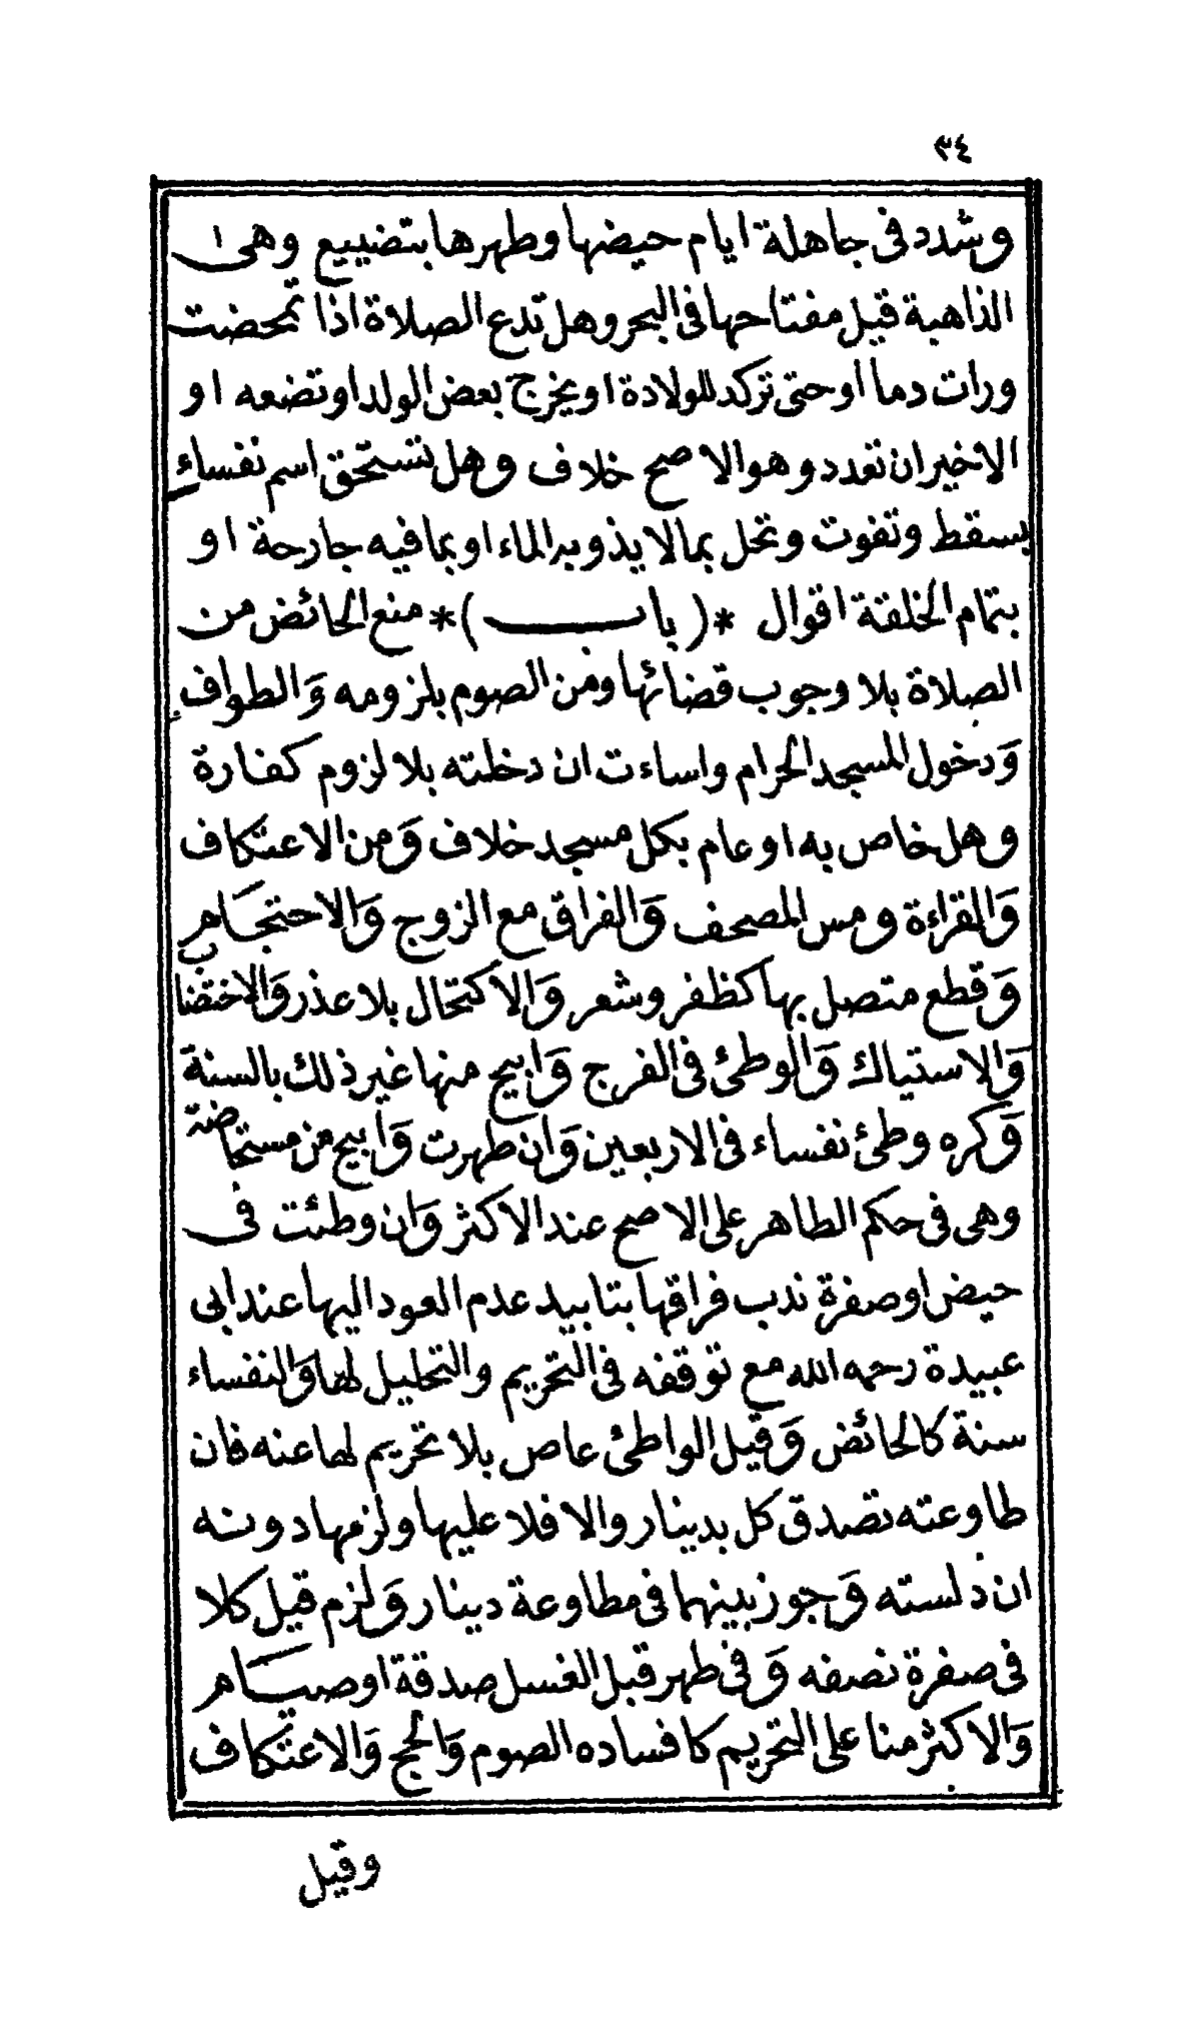 ٣٤
وشدد فى جاهلة ايام حيضها وطهرها بتضييع وهى ١
الذاهبة قيل مفتاحها فى البحر وهل تدع الصلاة اذا تمحضت
ورات دما أو حتى تركد للولادة او يخرج بعض الولد او تضعه او
الاخير ان تعدد وهو الاصح خلاف وهل تستحق اسم نفساء
بسقط وتفوت وتحل بما لا يذوبه الماء او بما فيه جارحة او
بتمام الخلقة اقوال *(باب)* منع الحائض من
الصلاة بلا وجوب قضائها ومن الصوم بلزومه وَالطواف
وَدخول المسجد الحرام واساءت ان دخلته بلا لزوم كفارة
وهل خاص به او عام بكل مسجد خلاف وَمن الاعتكاف
وَالقراءة ومس المصحف وَالفراق مع الزوج وَالاحتجام
وَقطع متصل بها كظفر وشعر وَالاكتحال بلا عذر وَالاختضاب
وَالاستياك وَالوطئ فى الفرج وَابيح منها غير ذلك بالسنة
وَكره وطئ نفساء فى الاربعين وَان طهرت وَابيح من مستحاضة
وهى فى حكم الطاهر على الاصح عند الاكثر وَان وطئت فى
حيض او صفرة ندب فراقها بتابيد عدم العود اليها عند ابى
عبيدة رحمه الله مع توقفه فى التحريم والتحليل لها وَالنفساء
سنة كالحائض وَقيل الواطئ عاص بلا تحريم لها عنه فان
طاوعته تصدق كل بدينار والا فلا عليها ولزمها دونه
ان دلسته وَجوز بينهما فى مطاوعة دينار وَلزم قيل كلا
فى صفرة نصفه وَفى طهر قبل الغسل صدقة او صيام
وَالاكثر منا على التحريم كافساده الصوم وَالحج وَالاعتكاف
وقيل